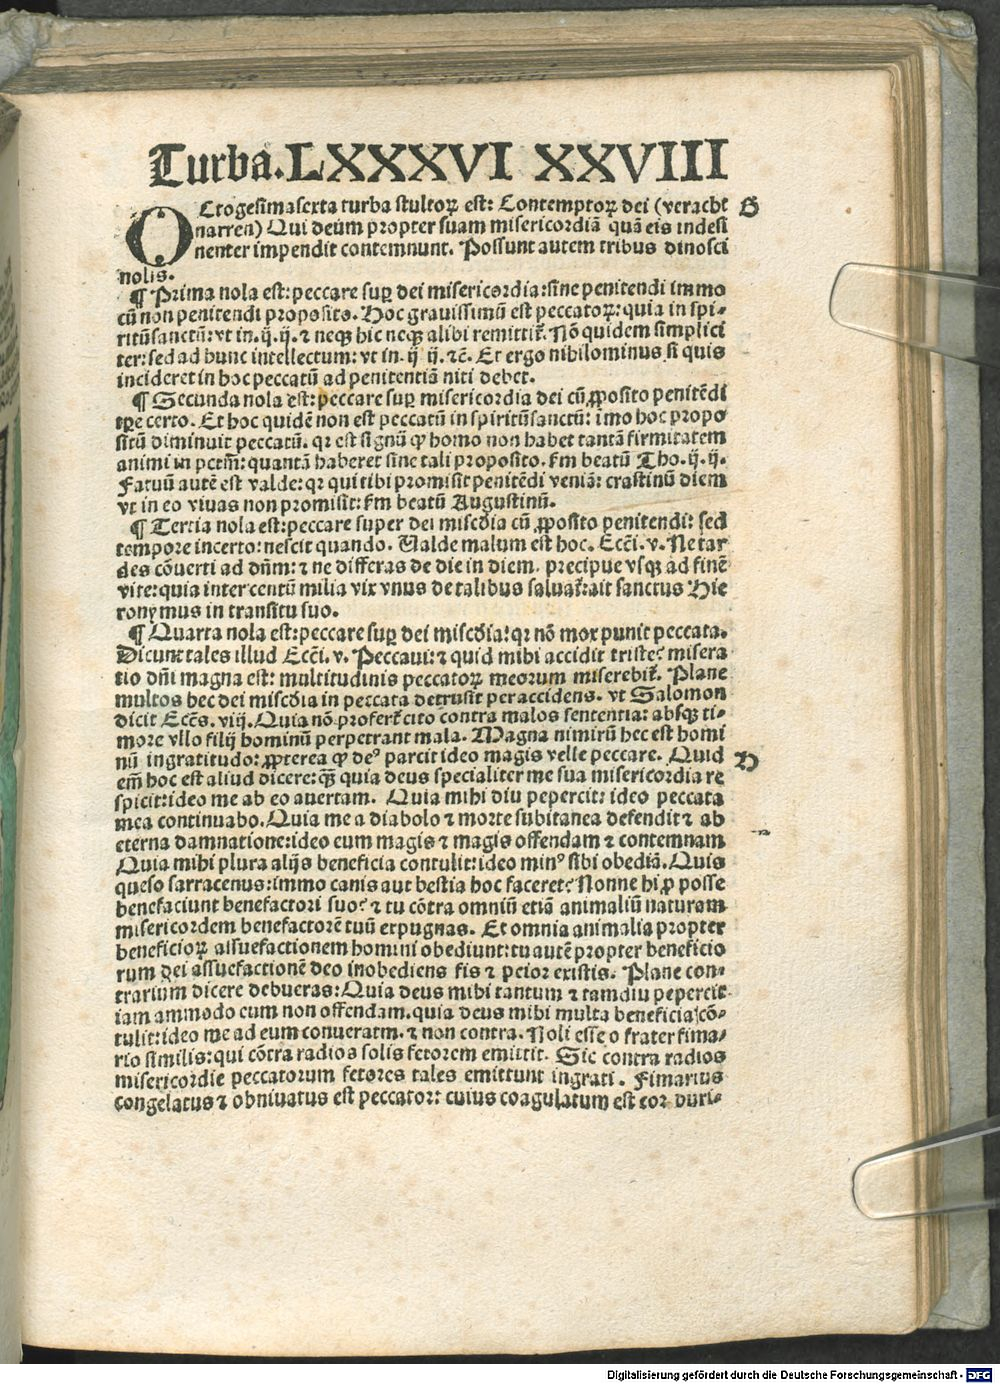 Turba. LXXXVI XXVIII
OCtogesimasexta turba stultoꝝ est: Contemptoꝝ dei (veracht G
narren) Qui deum propter suam misericordiā quā eis indesi
nenter impendit contemnunt. Possunt autem tribus dinosci
nolis.
¶ Prima nola est: peccare suꝑ dei misericordia: sine penitendi immo
cū non penitendi proposito. Hoc grauissimū est peccatoꝝ: quia in spi⸗
ritūsanctū: vt in. ij. ij. ⁊ neqꝫ hic neqꝫ alibi remittit᷑. Nō quidem simplici
ter: sed ad hunc intellectum: vt in. ij ij. ⁊c̄. Et ergo nihilominus si quis
incideret in hoc peccatū ad penitentiā niti debet.
¶ Secunda nola est: peccare suꝑ misericordia dei cū ꝓposito penitēdi
tꝑe certo. Et hoc quidē non est peccatū in spiritūsanctū: imo hoc propo
sitū diminuit peccatū. qꝛ est signū ꝙ homo non habet tantā firmitatem
animi in pctm̄: quantā haberet sine tali proposito. ẜm beatū Tho. ij. ij.
Fatuū autē est valde: qꝛ qui tibi promisit penitēdi veniā: crastinū diem
vt in eo viuas non promisit: ẜm beatū Augustinū.
¶ Tertia nola est: peccare super dei miscd̓ia cū ꝓposito penitendi: sed
tempore incerto: nescit quando. Valde malum est hoc. Eccī. v. Ne tar
des cōuerti ad dn̄m: ⁊ ne differas de die in diem. precipue vsqꝫ ad finē
vite: quia inter centū milia vix vnus de talibus saluat᷑: ait sanctus Hie
ronymus in transitu suo.
¶ Quarta nola est: peccare suꝑ dei miscd̓ia: qꝛ nō mox punit peccata.
Dicunt tales illud Eccī. v. Peccaui: ⁊ quid mihi accidit triste? misera
tio dn̄i magna est: multitudinis peccatoꝝ meorum miserebit᷑. Plane
multos hec dei miscd̓ia in peccata detrusit per accidens. vt Salomon
dicit Eccs̄. viij. Quia nō profert᷑ cito contra malos sententia: absqꝫ ti⸗
more vllo filij hominū perpetrant mala. Magna nimirū hec est homi
nū ingratitudo: ꝓpterea ꝙ deꝰ parcit ideo magis velle peccare. Quid H
em̄ hoc est aliud dicere: qꝫ̄ quia deus specialiter me sua misericordia re
spicit: ideo me ab eo auertam. Quia mihi diu pepercit: ideo peccata
mea continuabo. Quia me a diabolo ⁊ morte subitanea defendit ⁊ ab
eterna damnatione: ideo eum magis ⁊ magis offendam ⁊ contemnam
Quia mihi plura alijs beneficia contulit: ideo minꝰ sibi obediā. Quis
queso sarracenus: immo canis aut bestia hoc faceret? Nonne hi ꝓ posse
benefaciunt benefactori suo? ⁊ tu cōtra omniū etiā animaliū naturam
misericordem benefactorē tuū expugnas. Et omnia animalia propter
beneficioꝝ assuefactionem homini obediunt: tu autē propter beneficio
rum dei assuefactionē deo inobediens fis ⁊ peior existis. Plane con⸗
trarium dicere debueras: Quia deus mihi tantum ⁊ tamdiu pepercit
iam ammodo eum non offendam. quia deus mihi multa beneficia cō⸗
tulit: ideo me ad eum conuertam. ⁊ non contra. Noli esse o frater fima⸗
rio similis: qui cōtra radios solis fetorem emittit. Sic contra radios
misericordie peccatorum fetores tales emittunt ingrati. Fimarius
congelatus ⁊ obniuatus est peccator: cuius coagulatum est cor duri⸗
Digitalisierung gefördert durch die Deutsche Forschungsgemeinschaft - DFG